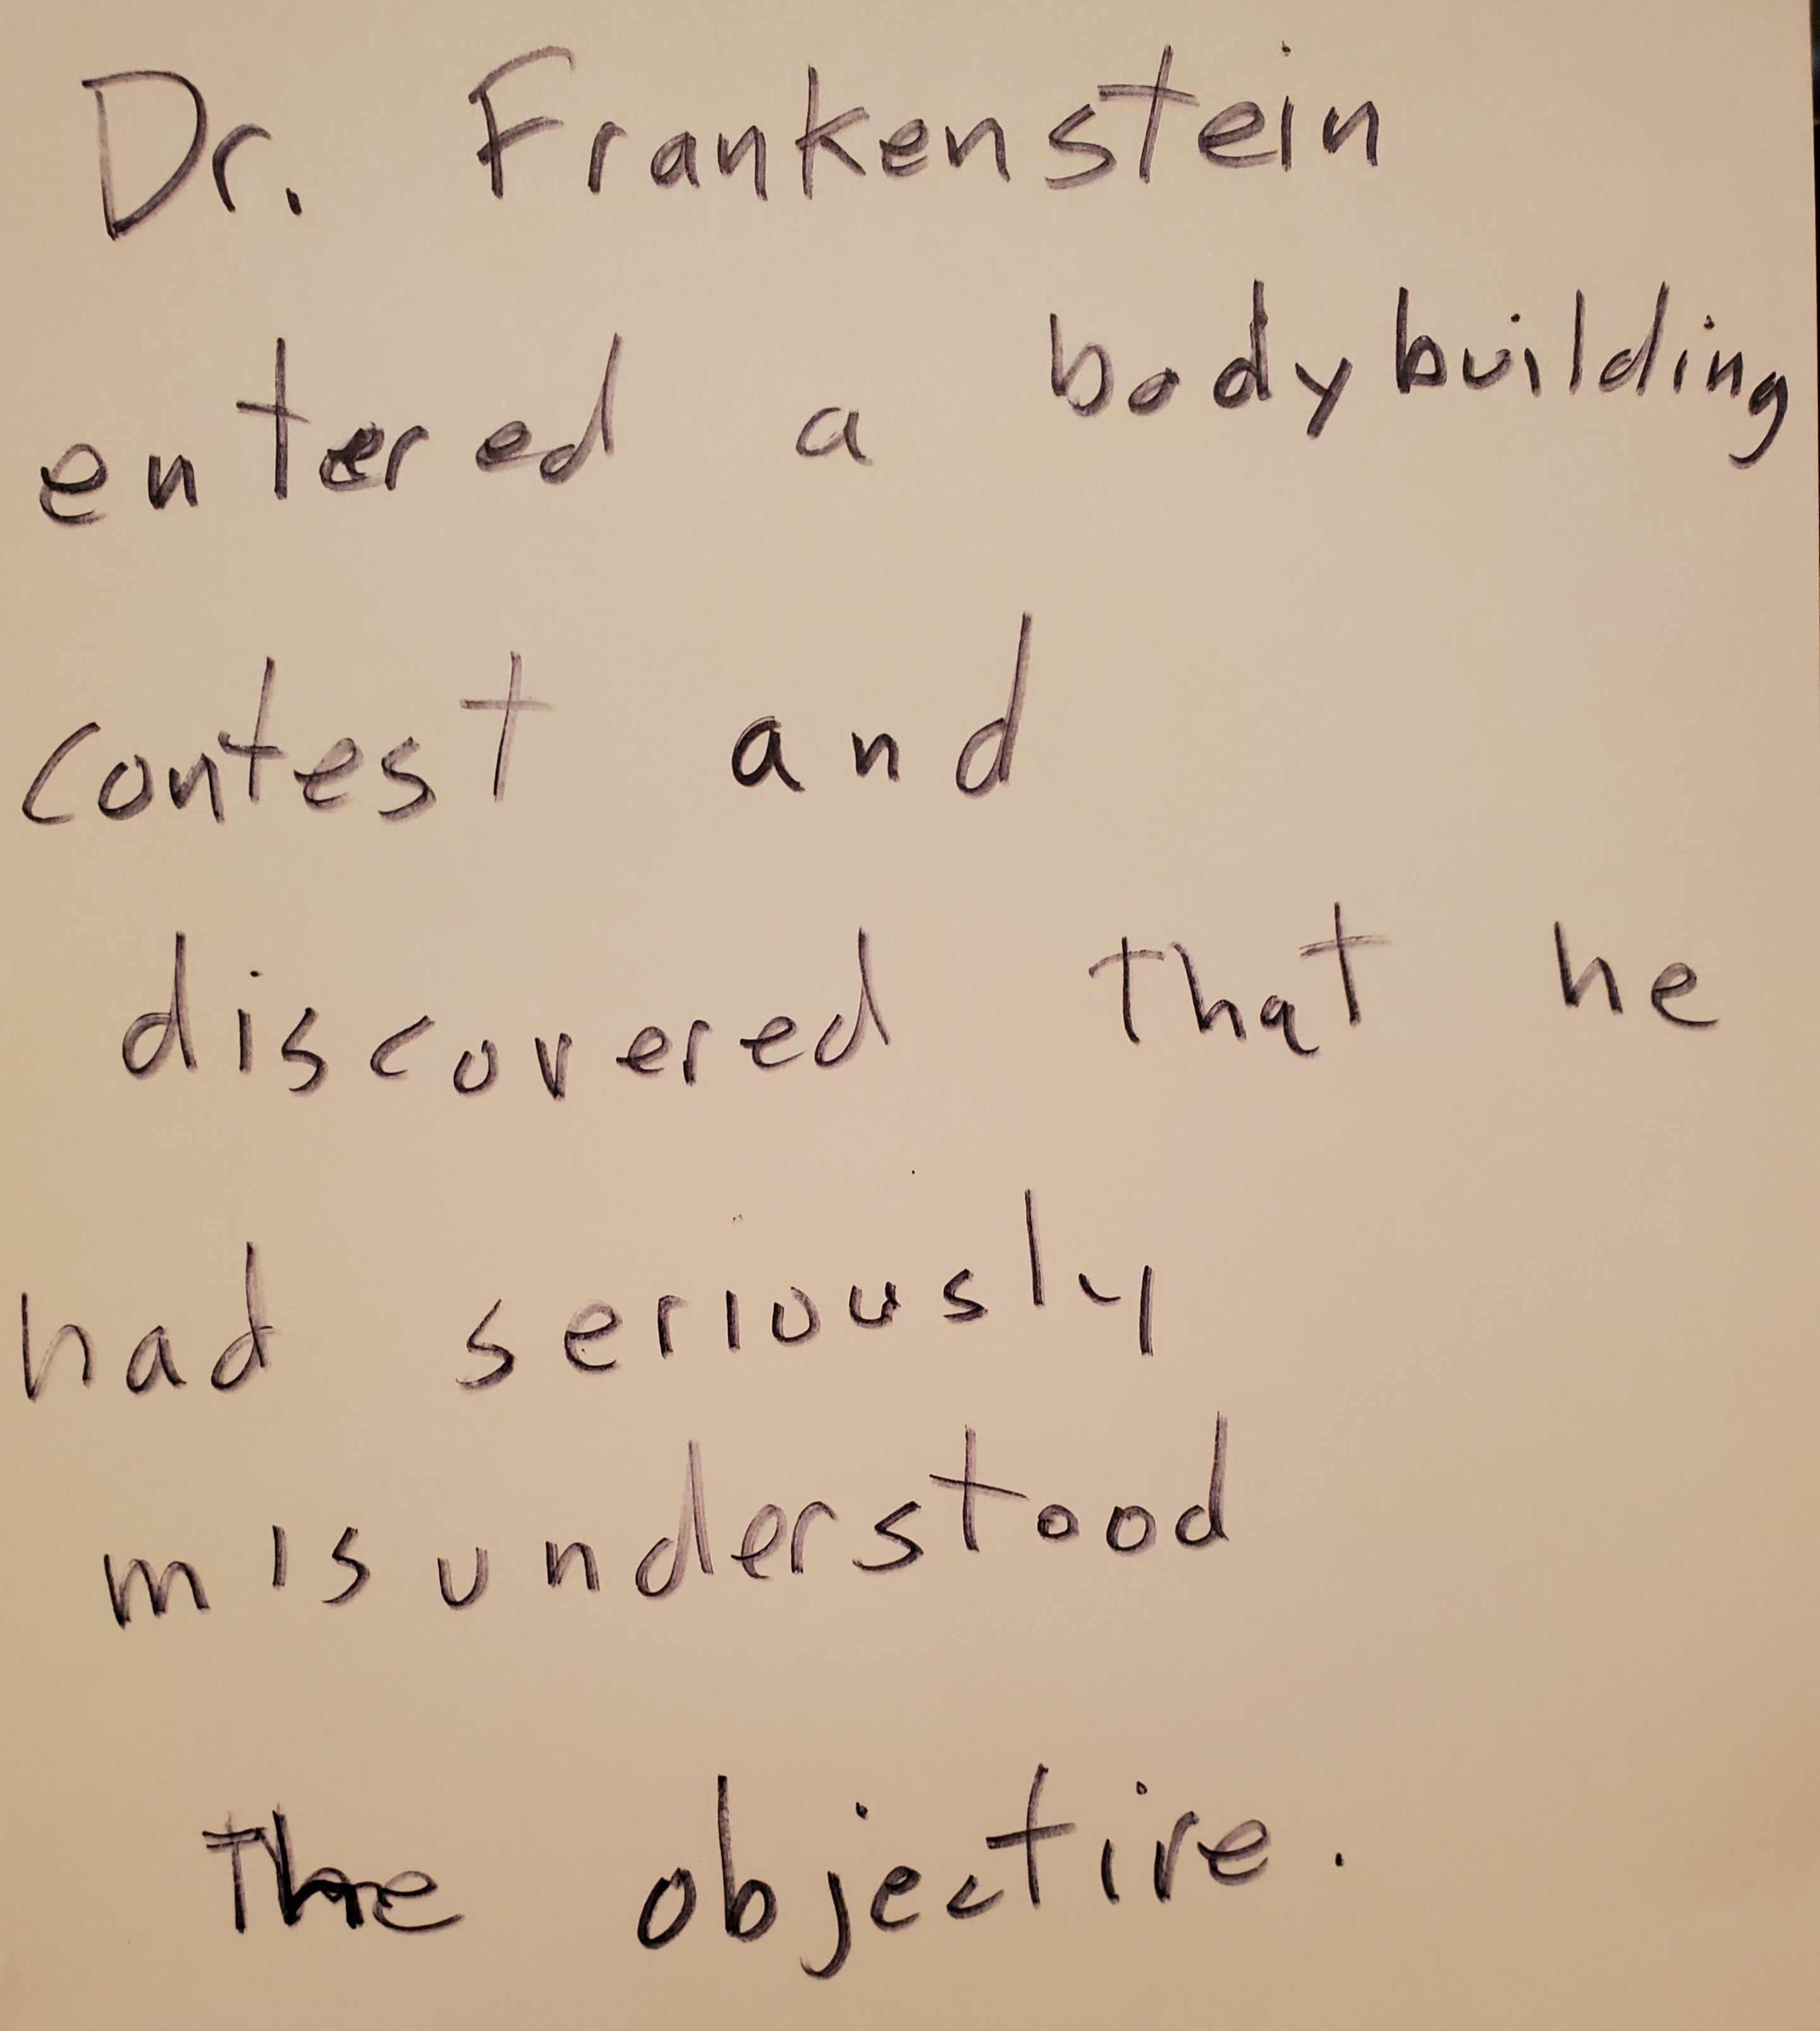 Dr. Frankenstein
entered a bodybuilding
contest and
discovered that he
had seriously
misunderstood
the objective.